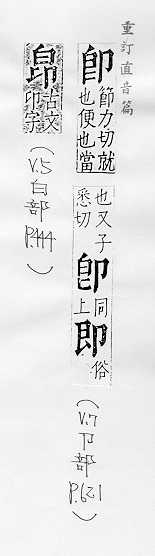 重訂直音篇
卽 節力切就也便也當也又子悉切 卽 同上 即 俗
(V.7 卩部 P.621)
皍 古文印字
(V.5 白部 P.444)